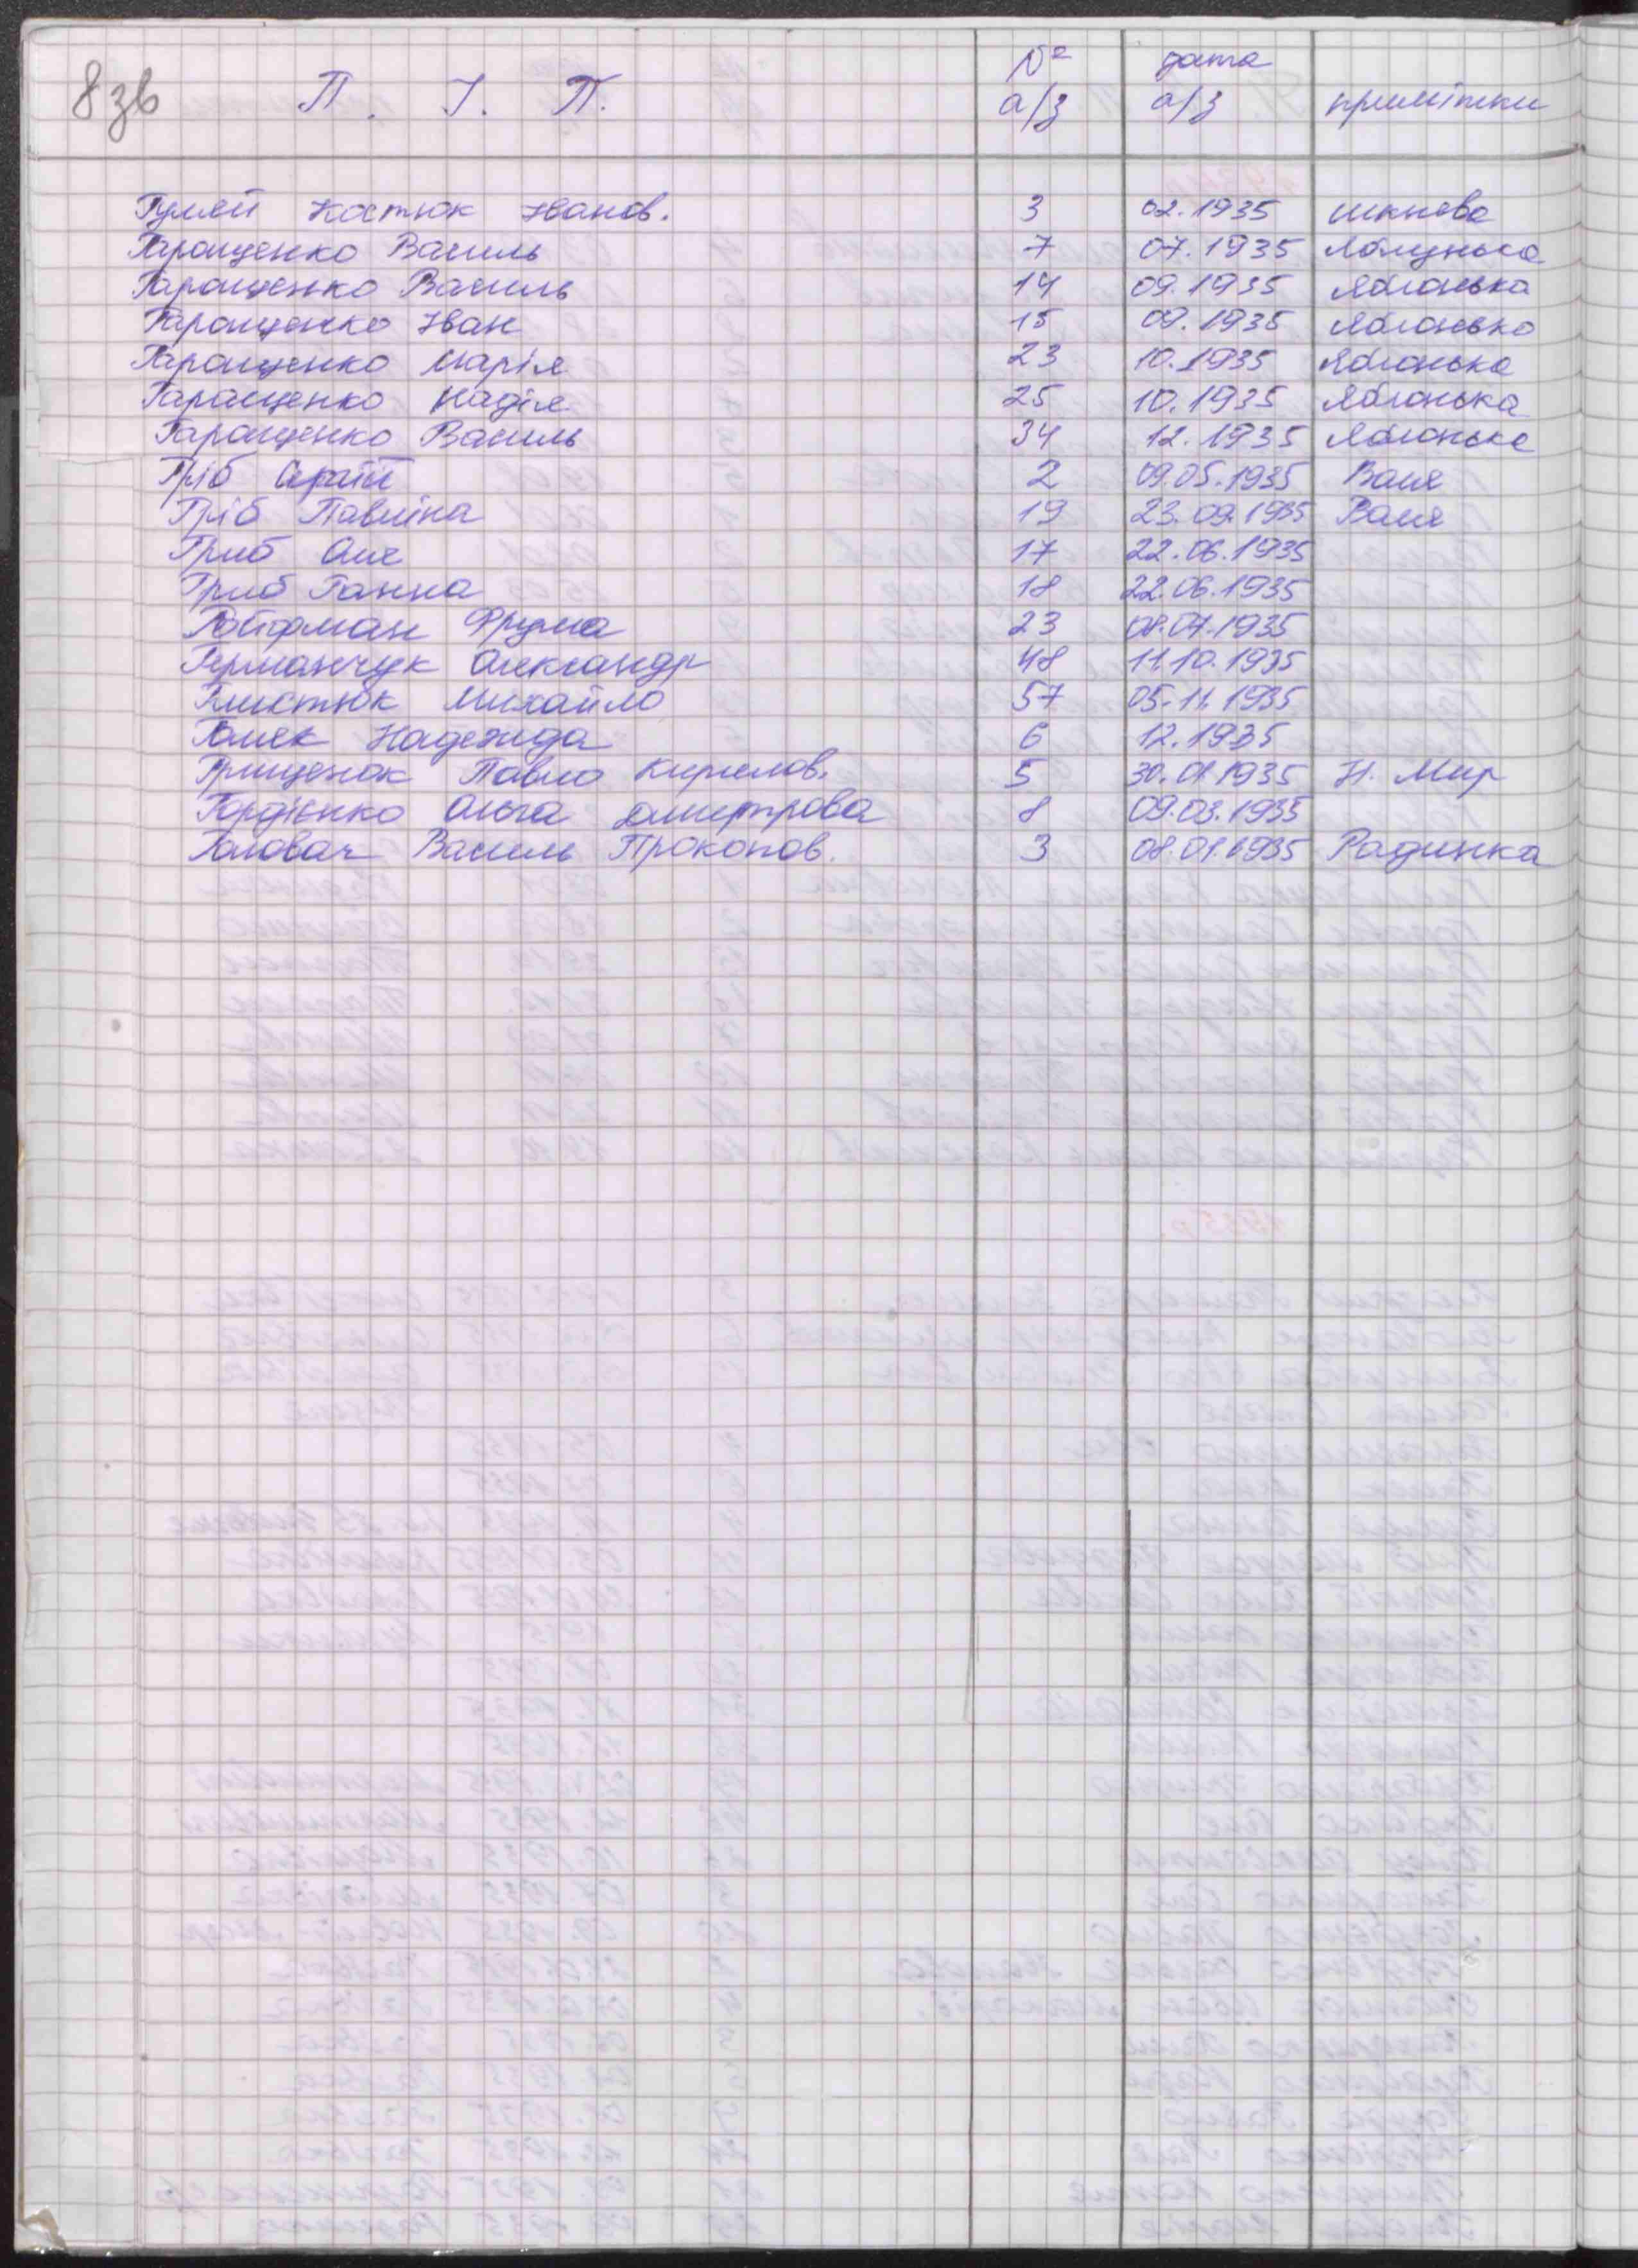 8зв
П. І. П. № а/з дата а/з примітки
Гулей Костюк Іванов. 3 02.1935
Гаращенко Василь 7 07.1935
Гаращенко Василь 14 09.1935 Яблонька
Гаращенко Іван 15 09.1935 Яблонька
Гаращенко Марія 23 10.1935 Яблонька
Гаращенко Надія 25 10.1935 Яблонька
Гаращенко Василь 34 12.1935 Яблонька
Гріб 2 09.05.1935 Валя
Гріб Павліна 19 23.09.1935 Валя
Гриб Оля 17 22.06.1935
Гриб Ганна 18 22.06.1935
Гойфман Фрума 23 08.07.1935
Германчук Олександр 48 11.10.1935
Михайло 57 05.11.1935
Надежда 6 12.1935
Грищенюк Павло Кирилов. 5 30.01.1935 Н. Мир
Гордієнко Ольга Дмитрова 8 09.03.1935
Головач Василь Прокопов. 3 08.01.1935 Радинка